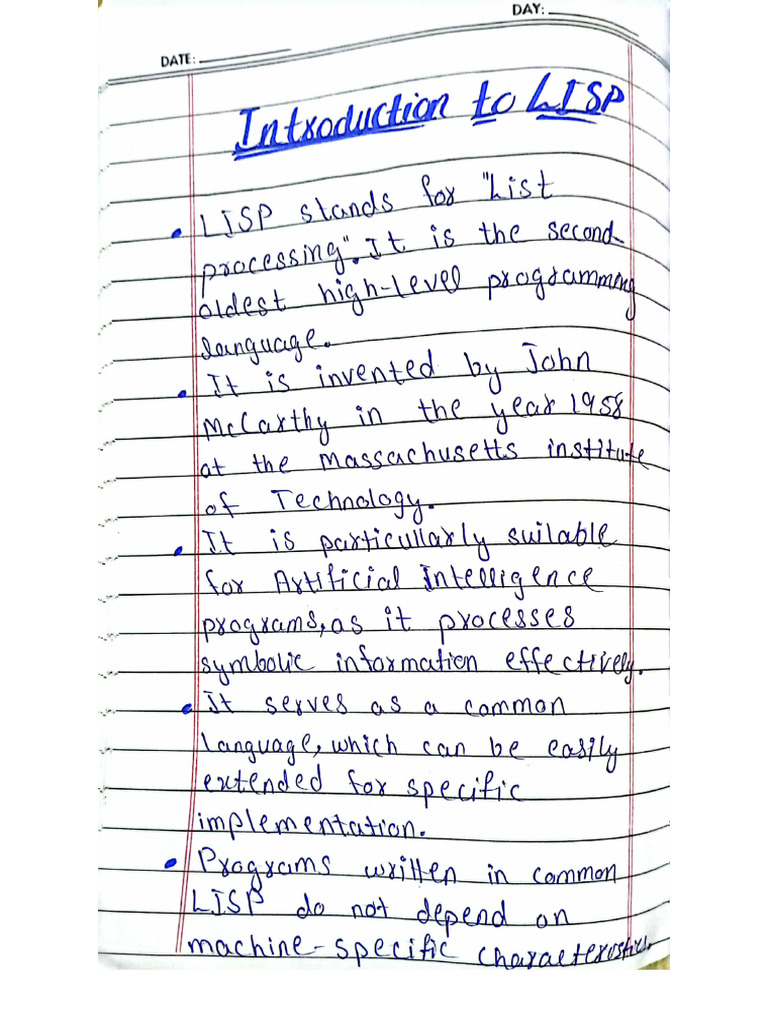 DAY:
DATE:
Introduction to LISP
LISP stands for "List
processing". It is the second
oldest high-level programming
language.
It is invented by John
McCarthy in the year 1958
at the Massachusetts institute
of Technology.
It is particullarly suilable
for Artificial Intelligence
programs, as it processes
symbolic information effectively.
It serves as a common
language, which can be easily
extended for specific
implementation.
Programs written in common
LISP do not depend on
machine-specific characterostics.